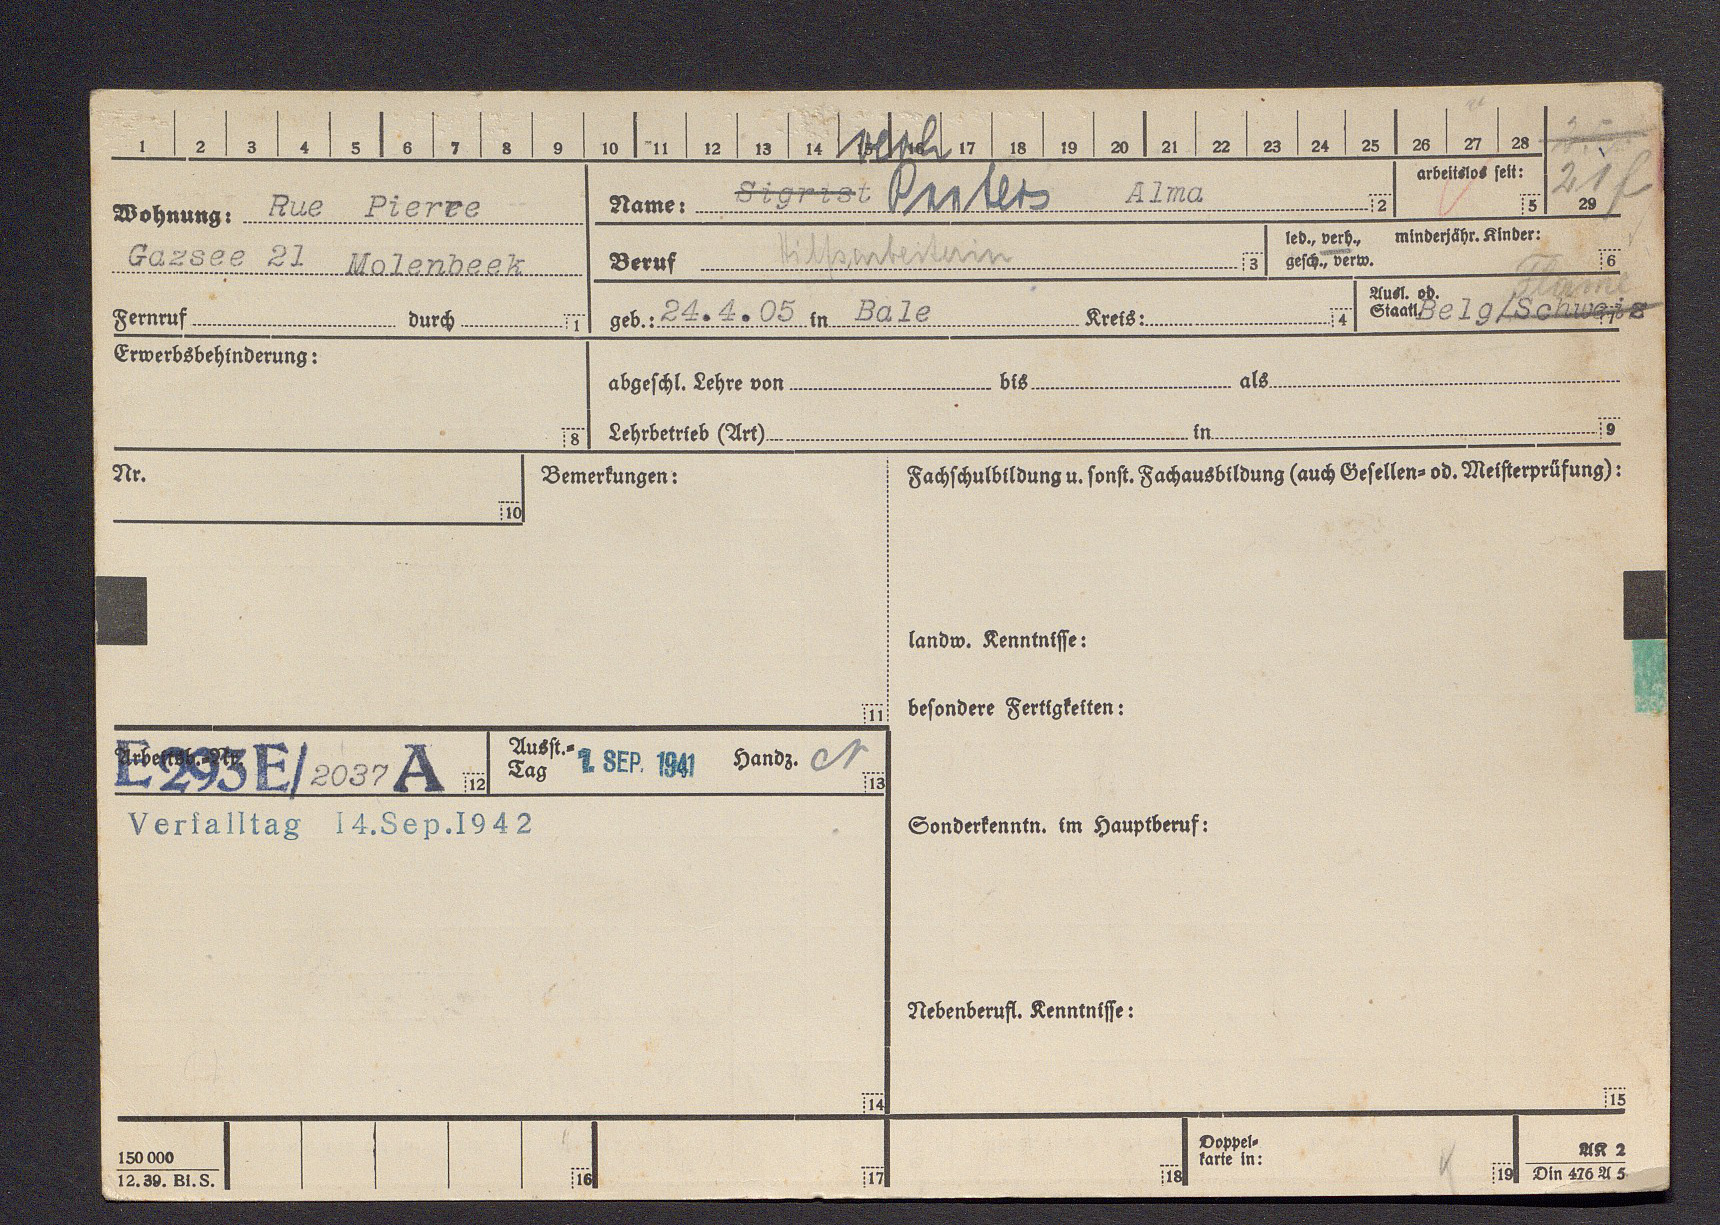 1 2 3 4 5 6 7 8 9 10 11 12 13 14 15 16 17 18 19 20 21 22 23 24 25 26 27 28
verh
Wohnung: Rue Pierre
Gazsee 21 Molenbeek
Fernruf durch 1
Name: Sigrist Peeters Alma 2
arbeitslos seit: 5
21 f
29
Beruf Hilfsarbeiterin 3
led., verh., minderjähr. Kinder:
gesch., verw. 6
geb.: 24.4.05 in Bale Kreis: 4
Flame
Ausl. od.
Staatl. Belg/Schweiz 7
Erwerbsbehinderung:
8
abgeschl. Lehre von bis als
Lehrbetrieb (Art) in 9
Nr.
10
Bemerkungen:
11
Fachschulbildung u. sonst. Fachausbildung (auch Gesellen- od. Meisterprüfung):
landw. Kenntnisse:
besondere Fertigkeiten:
Arbeitsb.-Nr.
E293E/2037 A 12
Ausst.-
Tag 1. SEP. 1941 Handz. 13
Verfalltag 14.Sep.1942
14
Sonderkenntn. im Hauptberuf:
Nebenberufl. Kenntnisse:
15
150 000
12. 39. Bl. S.
16
17
18
Doppel-
karte in:
19
AK 2
Din 476 A 5